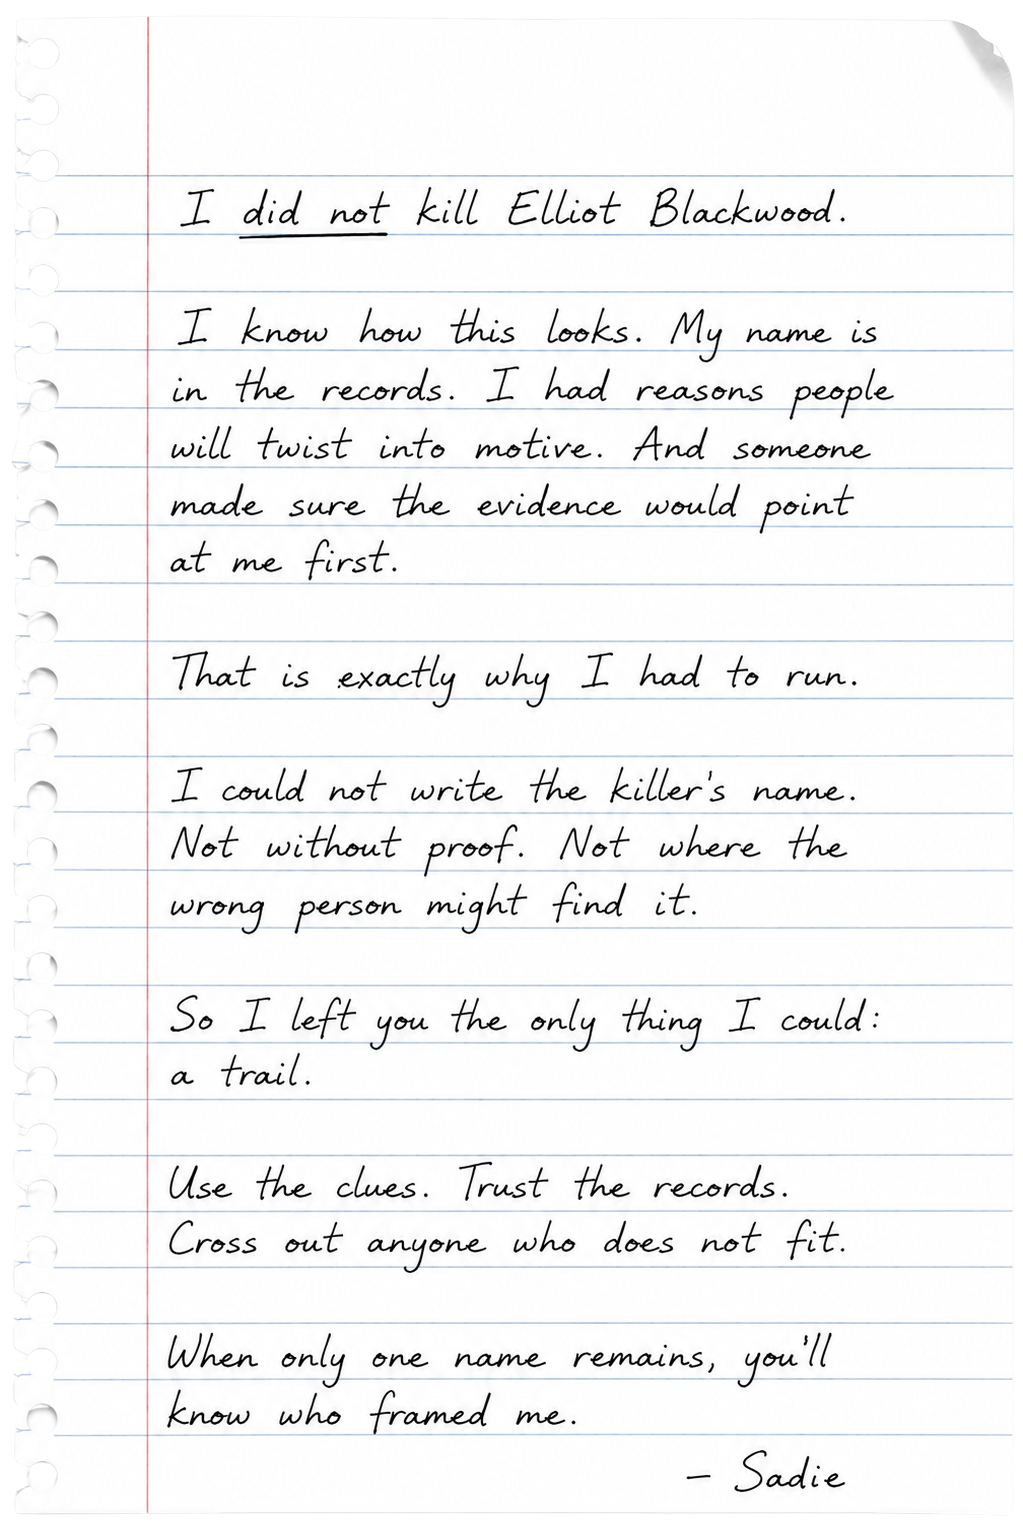 I did not kill Elliot Blackwood.
I know how this looks. My name is
in the records. I had reasons people
will twist into motive. And someone
made sure the evidence would point
at me first.
That is exactly why I had to run.
I could not write the killer's name.
Not without proof. Not where the
wrong person might find it.
So I left you the only thing I could:
a trail.
Use the clues. Trust the records.
Cross out anyone who does not fit.
When only one name remains, you'll
know who framed me.
– Sadie